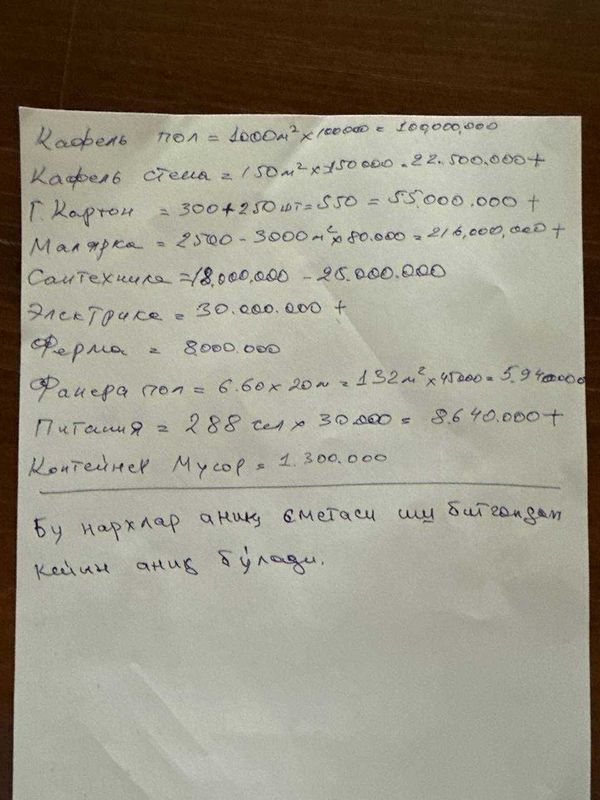 Кафель пол = 1000м² × 100000 = 100,000,000
Кафель стена = 150м² × 150000 = 22.500.000 +
Г. Картон = 300 + 250 шт = 550 = 55.000.000 +
Малярка = 2500 - 3000м² × 80.000 = 216,000,000 +
Сантехника = 18,000,000 - 25.000.000
Электрика = 30.000.000 +
Ферма = 8000.000
Фанера пол = 6.60 × 20м = 132м² × 45000 = 5.940000
Питания = 288 чел × 30.000 = 8.640.000 +
Контейнер Мусор = 1.300.000
Бу нархлар аниқ сметаси иш битгандан
кейин аниқ бўлади.